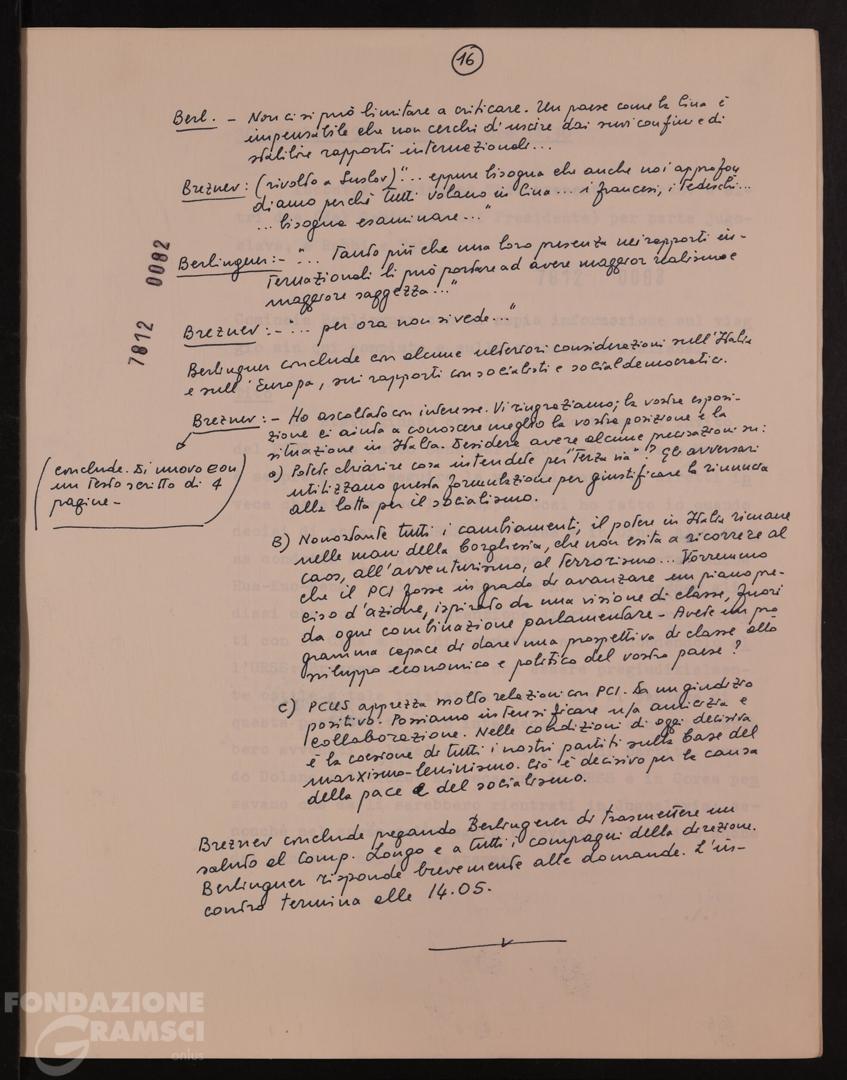 16
Berl. - Non ci si può limitare a criticare. Un paese come la Cina è
impensabile che non cerchi d'uscire dai suoi confini e di
stabilire rapporti internazionali...
Breznev: (rivolto a Suslov) "... eppure bisogna che anche noi approfon
diamo perché tutti volano in Cina... i francesi, i tedeschi...
... bisogna esaminare..."
Berlinguer: - "... Tanto più che una loro presenza nei rapporti in-
ternazionali li può portare ad avere maggior realismo e
maggiore saggezza..."
Breznev: - "... per ora non si vede..."
Berlinguer conclude con alcune ulteriori considerazioni sull'Italia
e sull'Europa, sui rapporti con socialisti e socialdemocratici.
Breznev: - Ho ascoltato con interesse. Vi ringraziamo; la vostra esposi-
zione ci aiuta a conoscere meglio la vostra posizione e la
situazione in Italia. Desidera avere alcune precisazioni su:
a) Potete chiarire cosa intendete per "Terza via"? Gli avversari
utilizzano questa formulazione per giustificare la rinuncia
alla lotta per il socialismo.
(conclude. Di nuovo con
un testo scritto di 4
pagine -)
B) Nonostante tutti i cambiamenti, il potere in Italia rimane
nelle mani della borghesia, che non esita a ricorrere al
caos, all'avventurismo, al terrorismo... Vorremmo
che il PCI fosse in grado di avanzare un piano pre-
ciso d'azione, ispirato da una visione di classe, fuori
da ogni combinazione parlamentare - Avete un pro
gramma capace di dare una prospettiva di classe allo
sviluppo economico e politico del vostro paese?
C) PCUS apprezza molto relazioni con PCI. Da un giudizio
positivo. Possiamo intensificare n/a amicizia e
collaborazione. Nelle condizioni di oggi decisiva
è la coesione di tutti i nostri partiti sulla base del
marxismo-leninismo. Ciò è decisivo per la causa
della pace e del socialismo.
Breznev conclude pregando Berlinguer di trasmettere un
saluto al comp. Longo e a tutti i compagni della direzione.
Berlinguer risponde brevemente alle domande. L'in-
contro termina alle 14.05.
7812 0082
FONDAZIONE
GRAMSCI
onlus